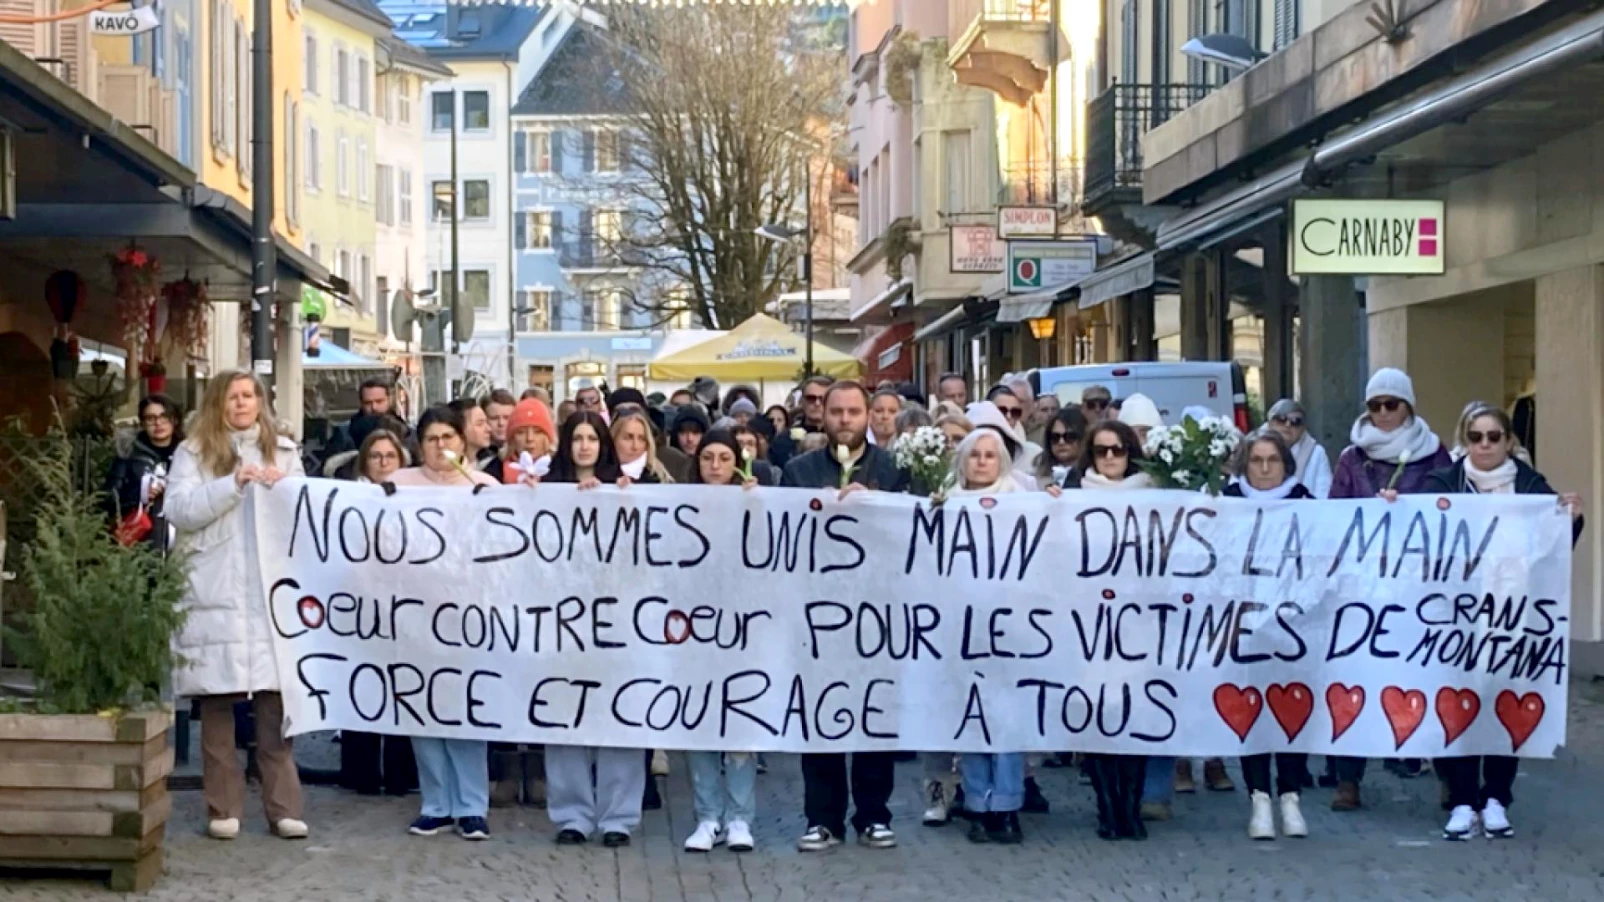 KAVÓ
SIMPLON
CARNABY
NOUS SOMMES UNIS MAIN DANS LA MAIN
COEUR CONTRE COEUR POUR LES VICTIMES DE CRANS-
MONTANA
FORCE ET COURAGE À TOUS